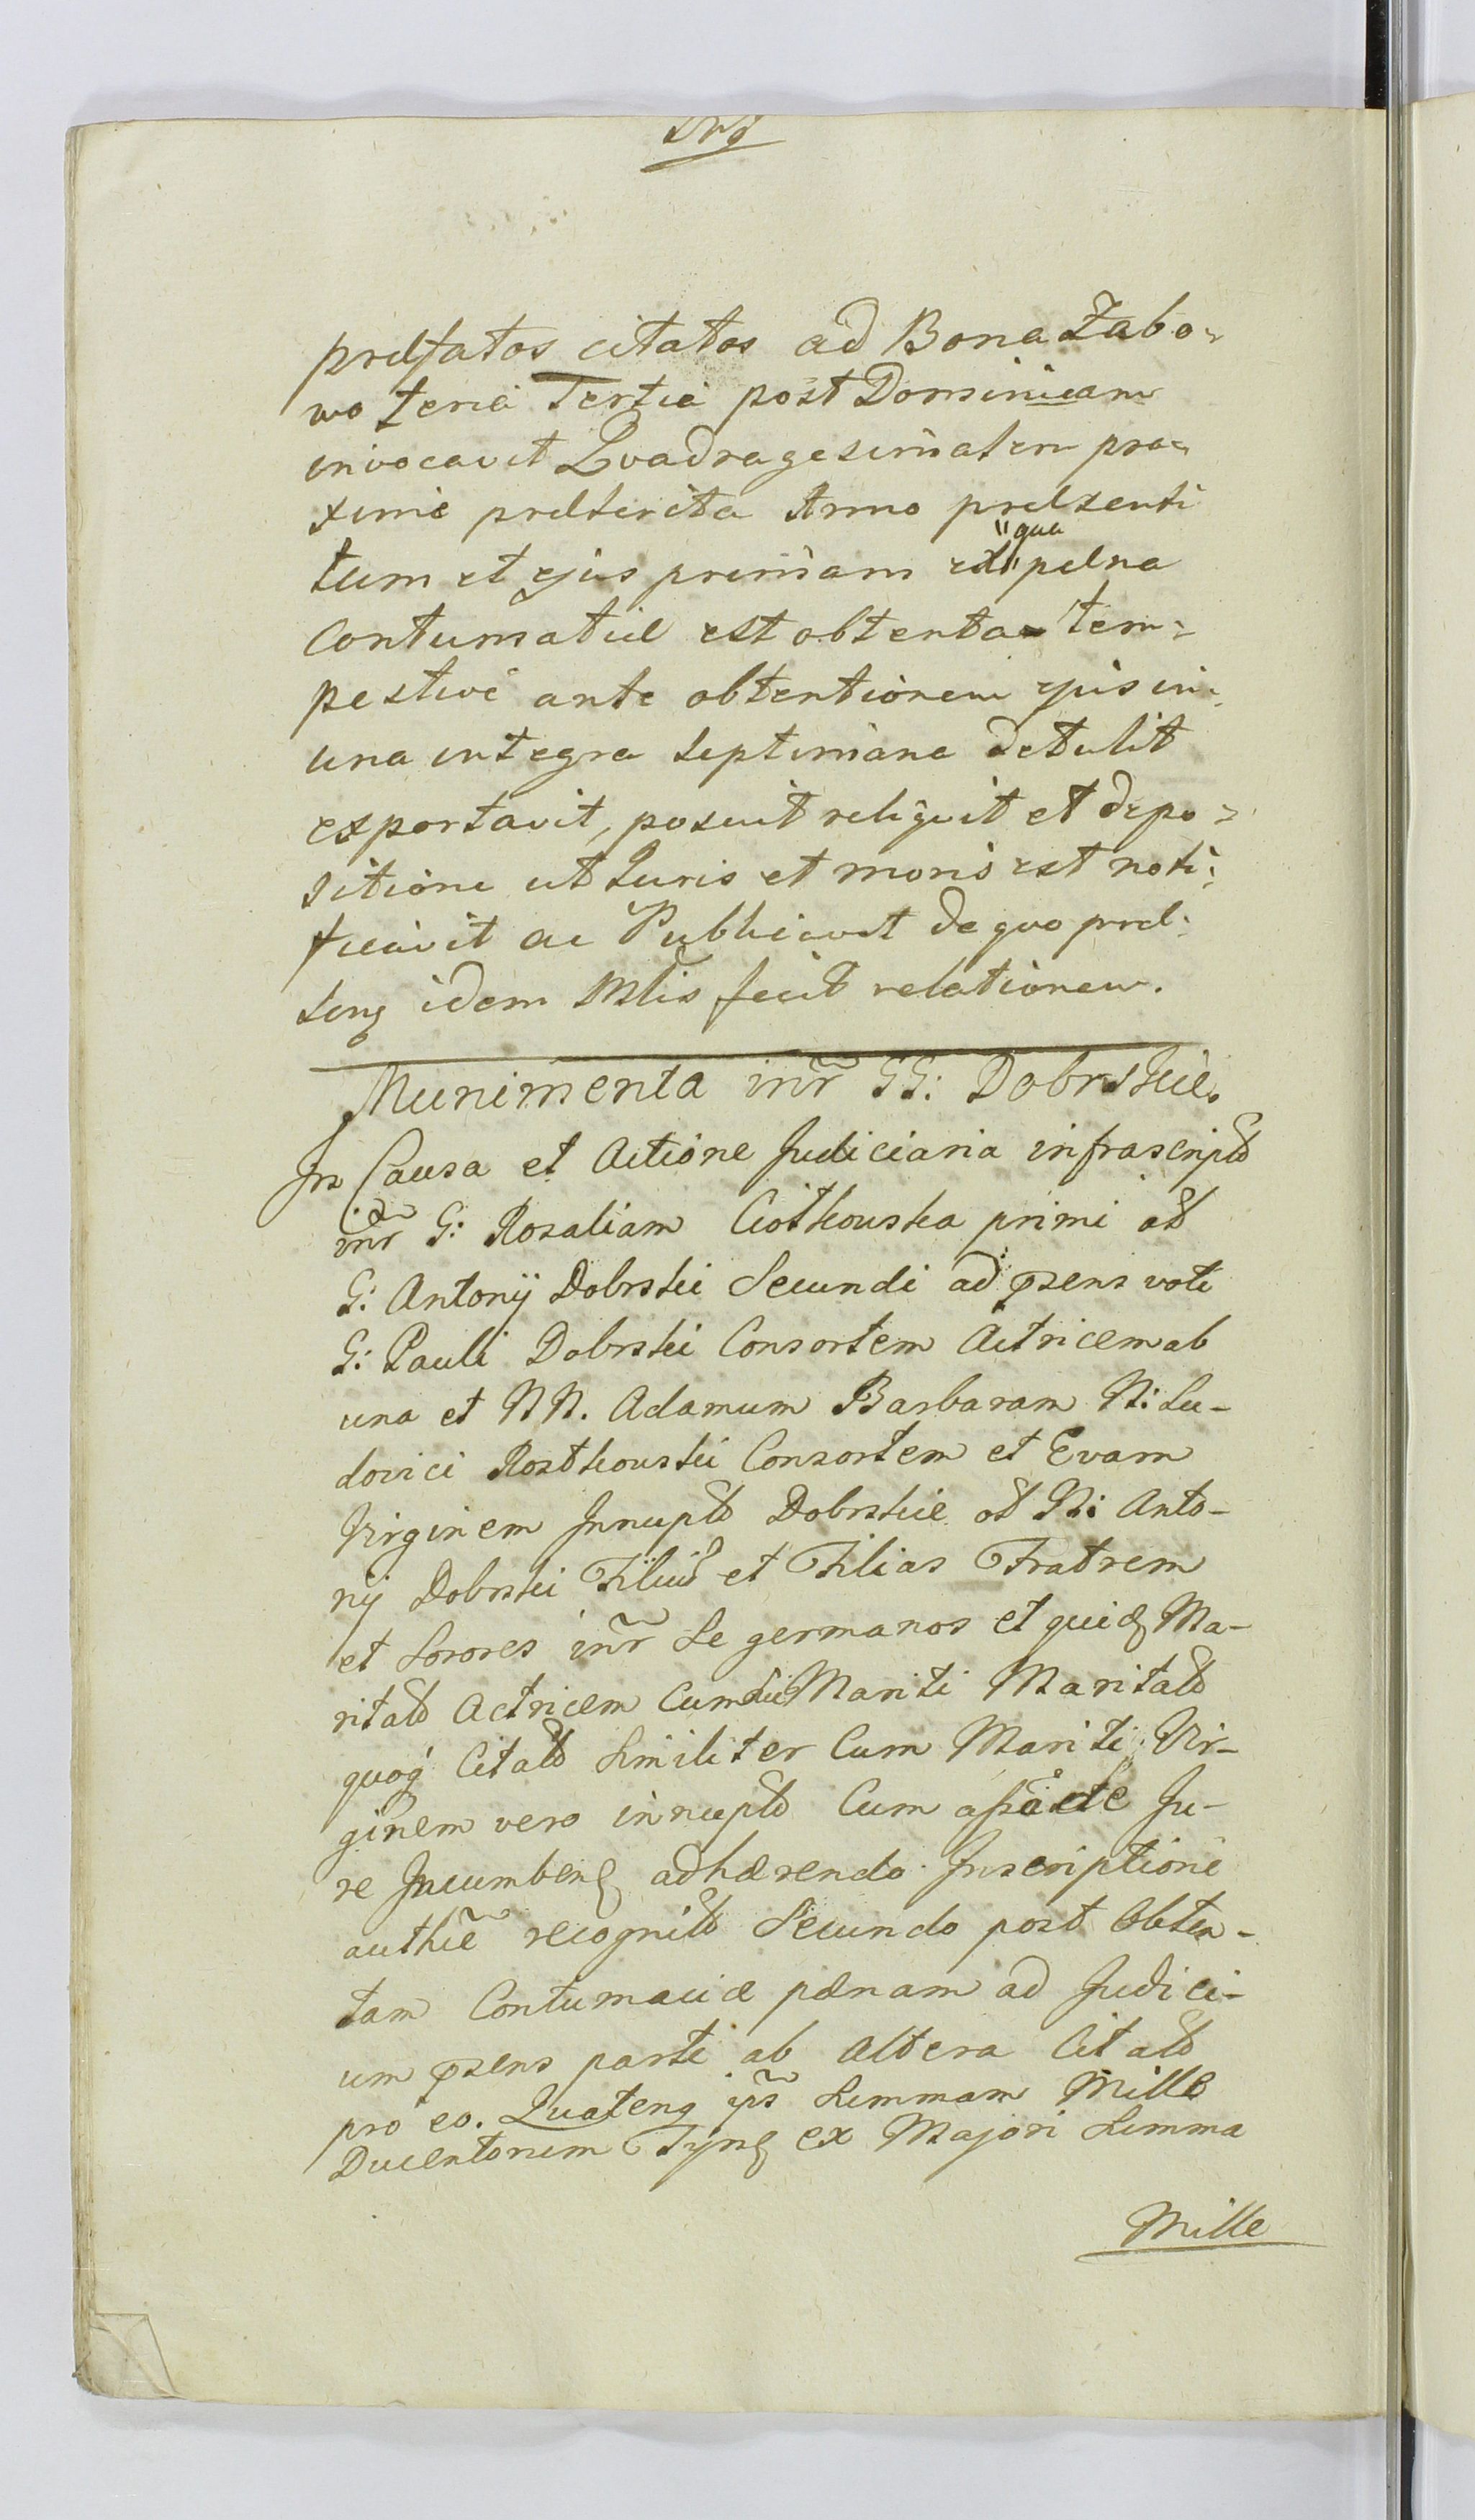 præfatos citatos ad Bona Zabo-
wo feria Tertia post Dominicam
invocavit Quadragesimalem pro-
xime præterita Anno præsenti
tum et ejus primam ex "qua pæna
Contumatiæ est obtenta tem-
pestive ante obtentionem ejus in
una integra septimana detulit
exportavit, posuit reliquit et depo-
sitione ut Juris et moris est noti-
ficavit ac Publicavit de quo præ-
sens idem Mlis fecit relationem.
Munimenta inr GG: Dobrskie.
In Causa et Actione Judiciaria infrascripta
inr G: Rosaliam Ciotkouska primi ad
G: Antonij Dobrski Secundi ad psens voti
G: Pauli Dobrski Consortem Actricem ab
una et NN. Adamum Barbaram N: Lu-
dovici Rostkouski Consortem et Evam
Virginem Innupta Dobrskie ad N: Anto-
nij Dobrski Filium et Filias Fratrem
et Sorores inr Se germanos et quidem Ma-
ritam Actricem Cum sui Mariti Maritam
quoq Citatam Similiter Cum Mariti Vir-
ginem vero innuptam Cum Ju-
re Incumben adhærendo Inscriptione
authe recognitam Secundo post Obten-
tam Contumaciæ pænam ad Judici-
um psens parte ab Altera Citatam
pro eo. Quatenq ips Summam Mille
Ducentorum Tynf ex Majori Summa
Mille